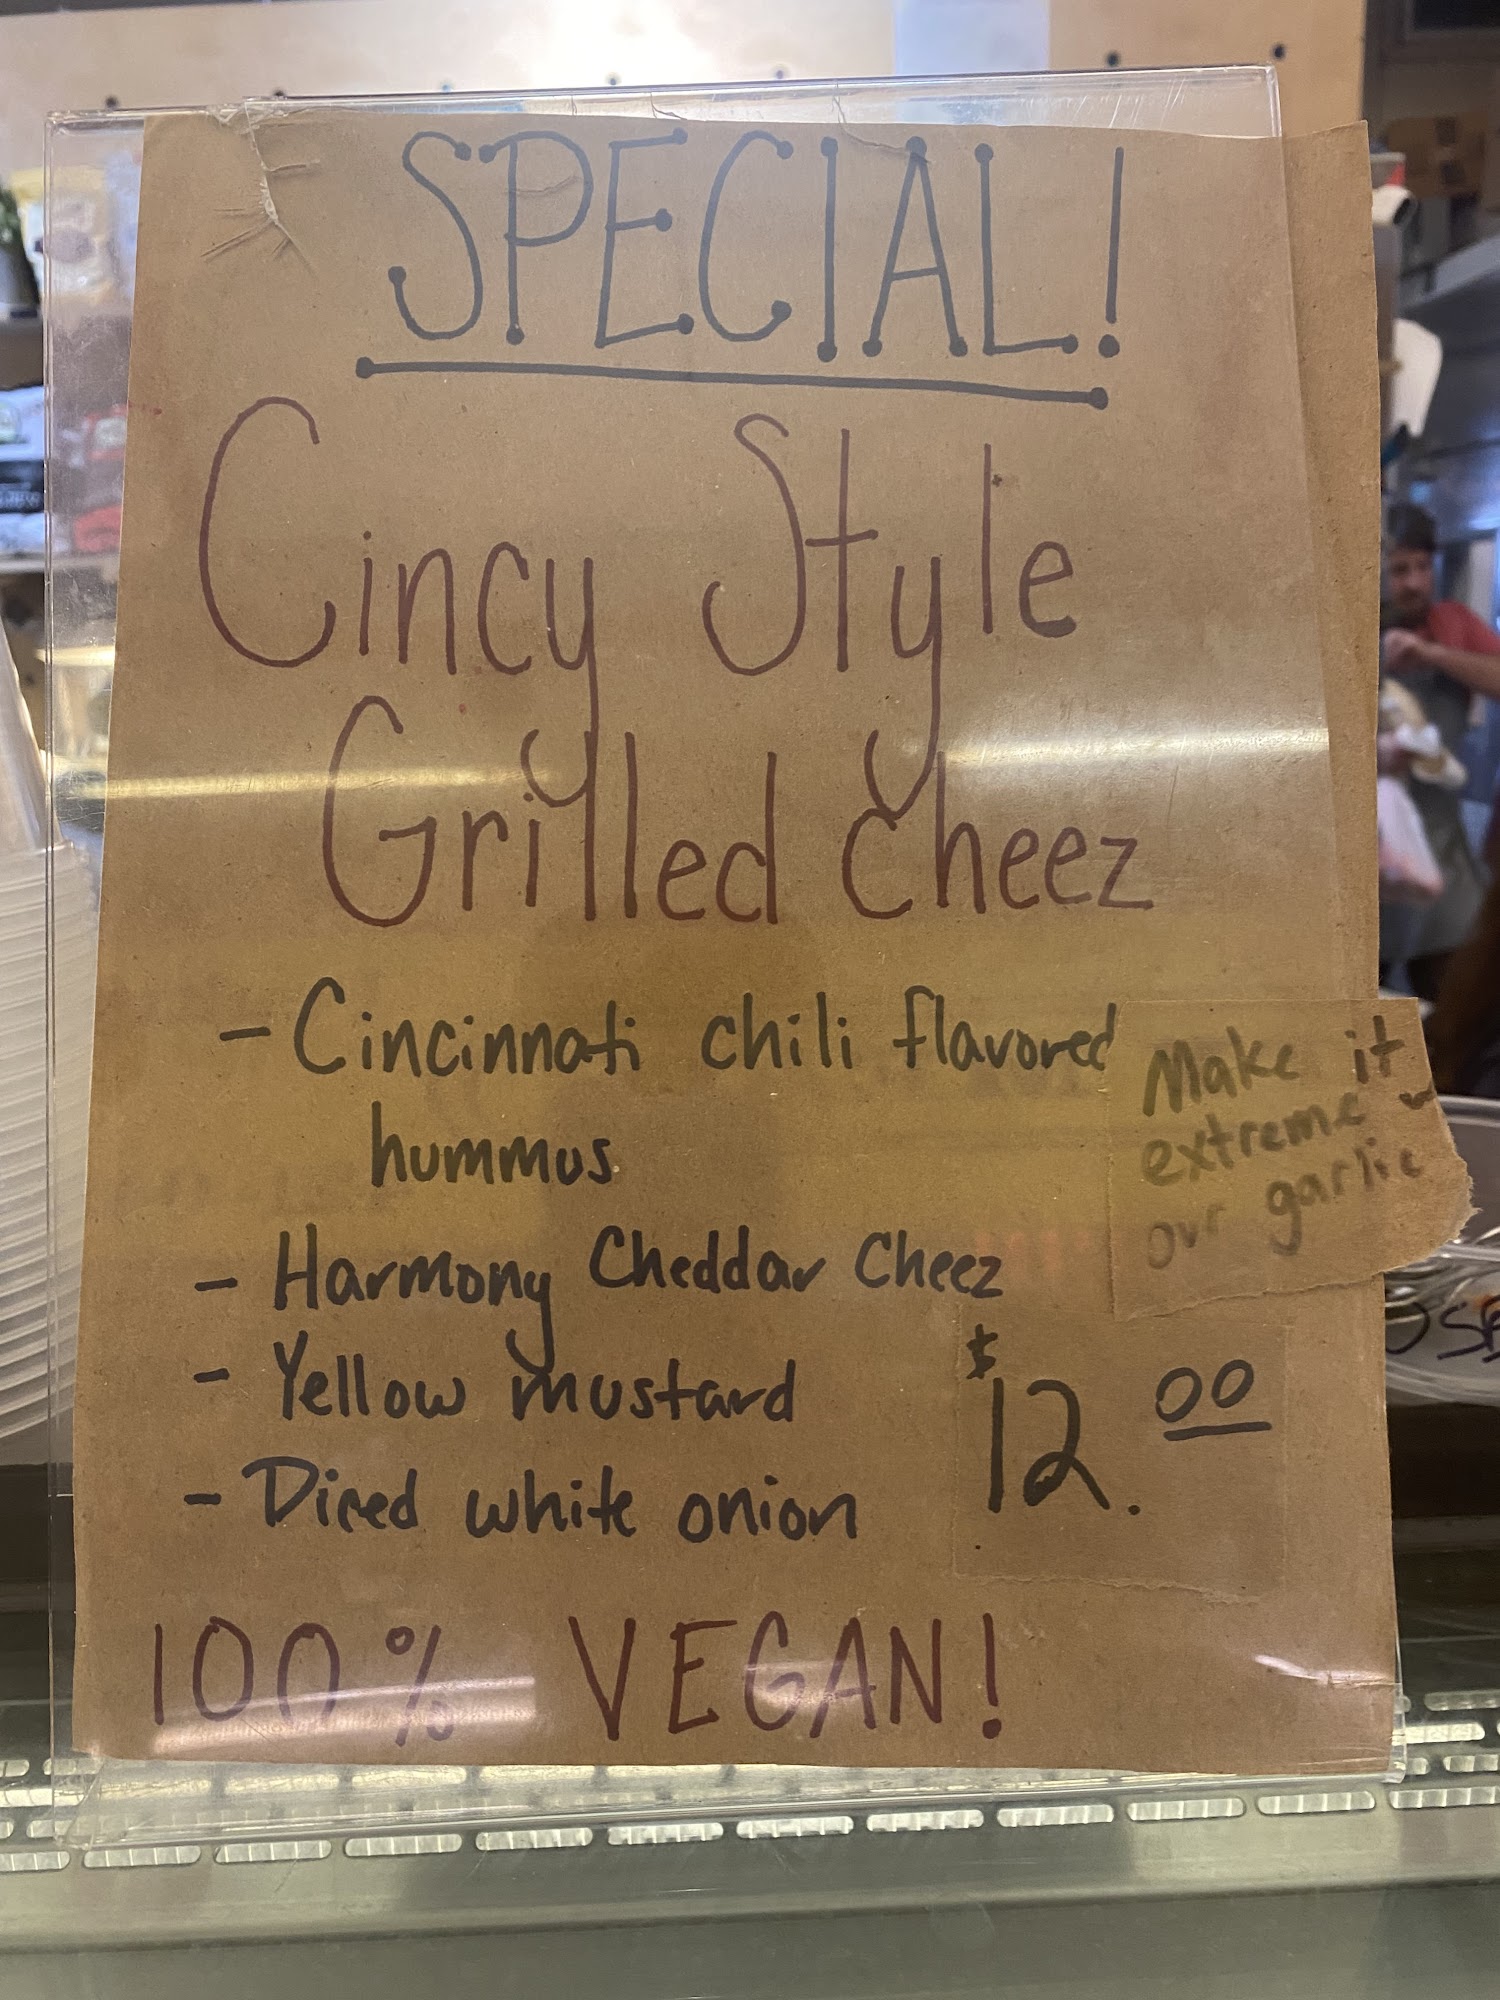 SPECIAL!
Cincy Style
Grilled Cheez
- Cincinnati chili flavored
hummus
- Harmony Cheddar Cheez
- Yellow mustard
- Diced white onion
Make it
extreme w
our garlic
$12.00
100% VEGAN!